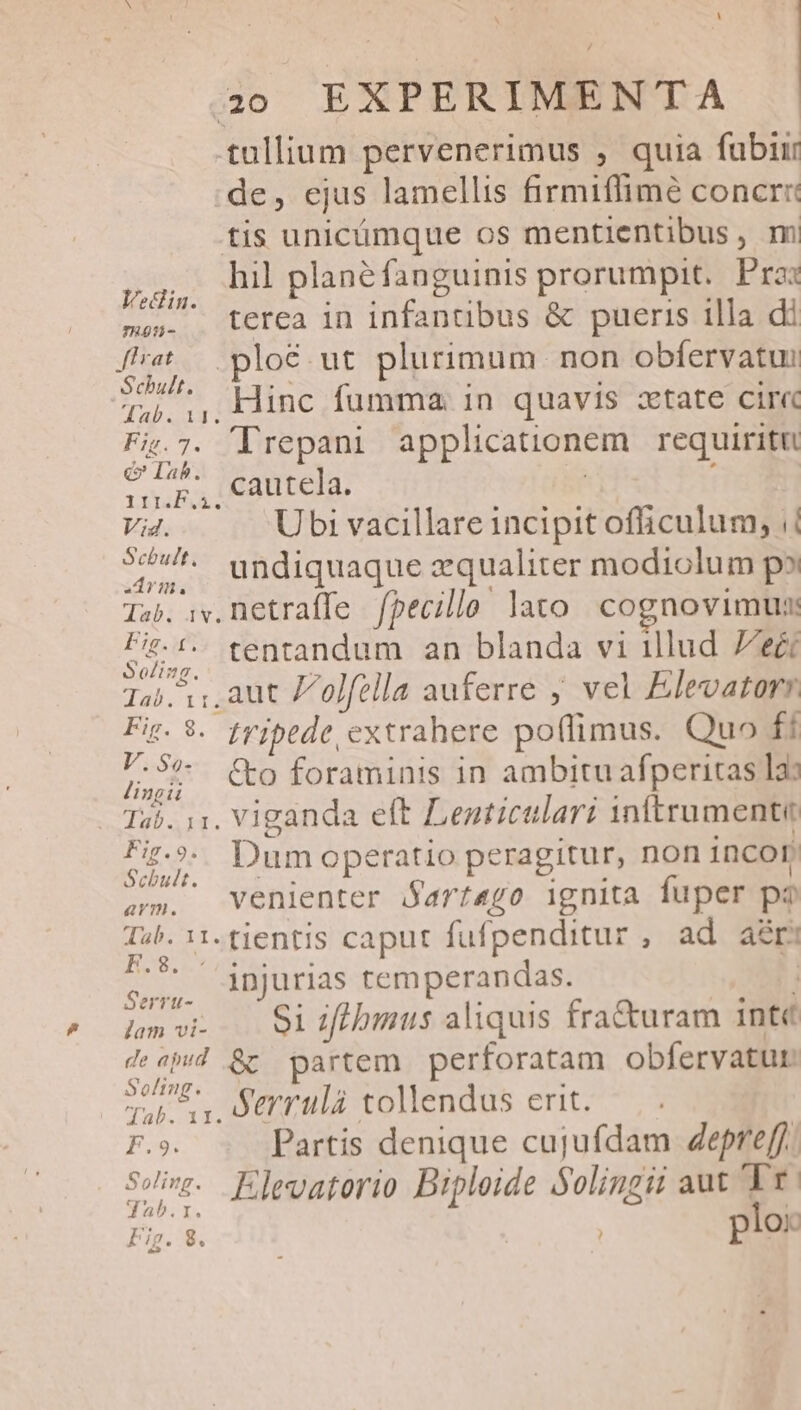 20 EXPERIMENTA
tullium pervenerimus , quia ſubii
de, ejus lamellis firmiſſimè concr
tis unicúmque os mentientibus, ni
hil planè ſanguinis prorumpit. Præ
terea in infantibus & pueris illa di
ploë ut plurimum non obſervatu
Hinc ſumma in quavis ætate circ
Trepani applicationem requirit
cautela.
Ubi vacillare incipit officulum,
undiquaque æqualiter modiolum p
netraſſe ſpecillo lato cognovimus
tentandum an blanda vi illud Vect
aut Volſella auferre , vel Elevator
tripede extrahere poſſimus. Quo f
cto foraminis in ambitu aſperitas la
viganda eſt Lenticulari inſtrument
Dum operatio peragitur, non incon
venienter Sartago ignita ſuper pa
tientis caput ſuſpenditur , ad aër
injurias temperandas.
Si iſthmus aliquis fracturam int
& partem perforatam obſervatur
Serrulâ tollendus erit.
Partis denique cujuſdam depreſſ
Elevatorio Biploide Solingii aut Tr
plo
Vectin.
mon-
ſtrat
Schult.
Tab. 11.
Fig. 7.
& Tab.
111.F.1.
Vid.
Schult.
Arm.
Tab. iv.
Fig. 1.
Soling.
Tab. 11.
Fig. 8.
V. So-
lingii
Tab. 11.
Fig. 9.
Schult.
arm.
Tab. 11.
F. 8.
Serru-
lam vi-
de apud
Soling.
Tab. 11.
F. 9.
Soling.
Tab. 1.
Fig. 8.